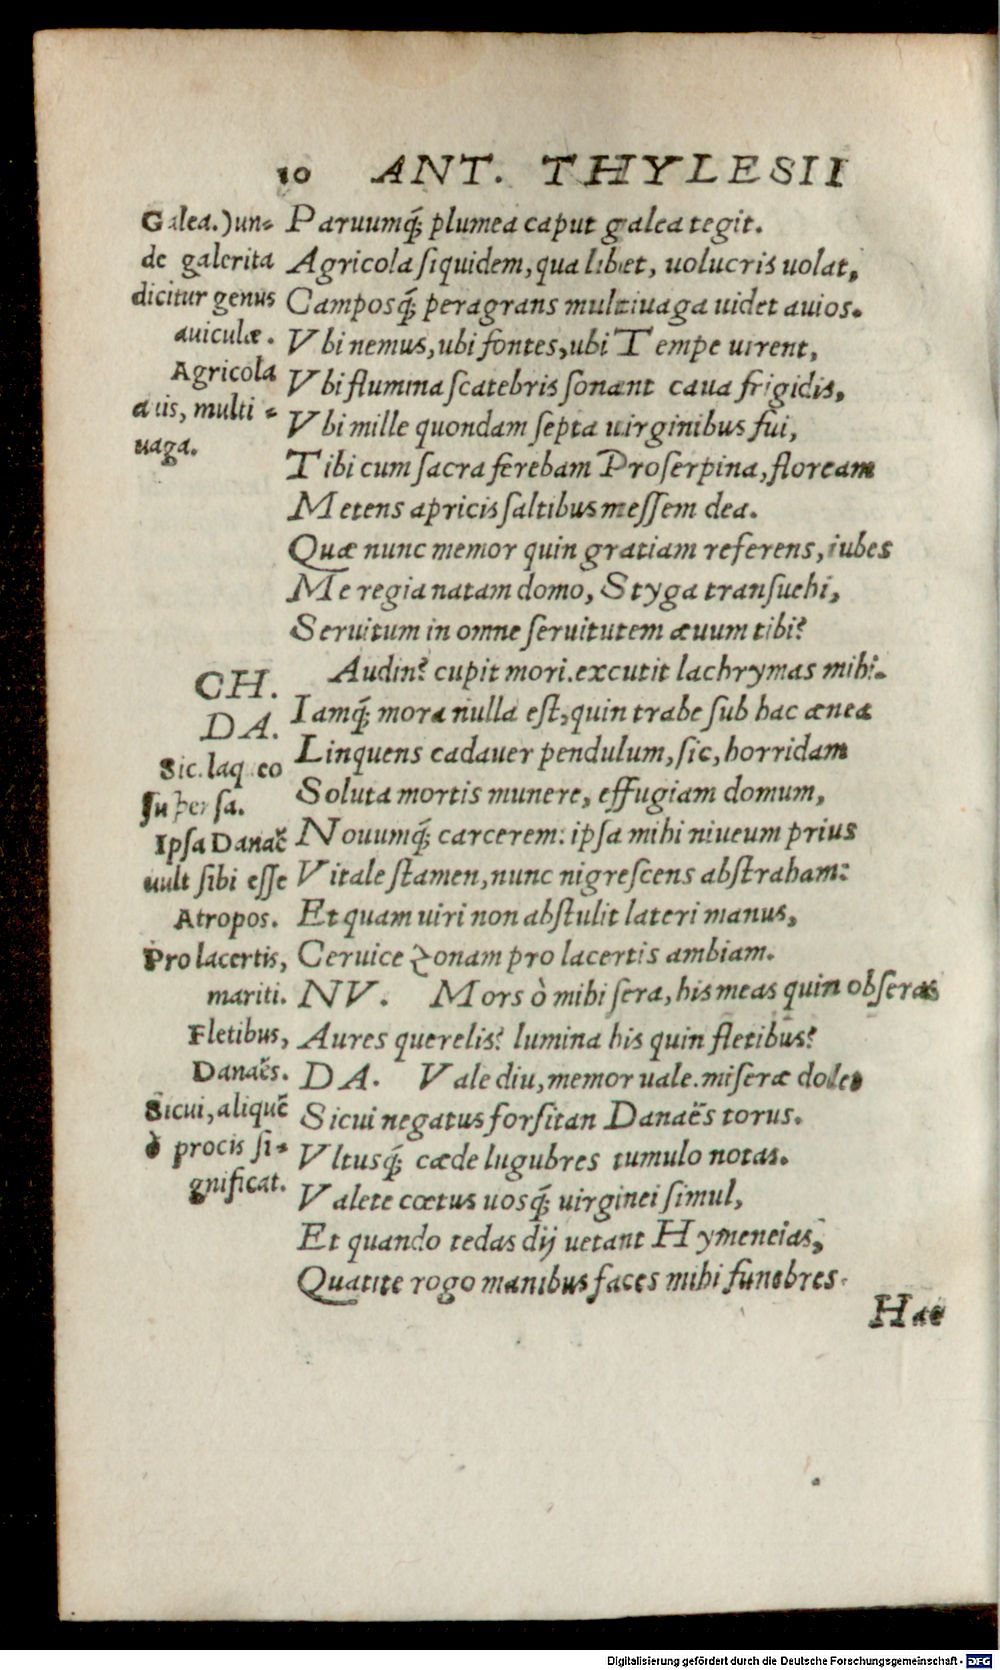 10 ANT. THYLESII
Galea.) un-
de galerita
dicitur genus
auiculæ.
Agricola
auis, multi-
uaga.
CH.
DA.
Sic.laqueo
suspensa.
Ipsa Danaë
uult sibi esse
Atropos.
Pro lacertis,
mariti.
Fletibus,
Danaës.
Sicui, aliquē
è procis si-
gnificat.
Paruumq; plumea caput galea tegit.
Agricola siquidem, qua libet, uolucris uolat,
Camposq; peragrans multiuaga uidet auios.
Vbi nemus, ubi fontes, ubi Tempe uirent,
Vbi flumina scatebris sonant caua frigidis,
Vbi mille quondam septa uirginibus fui,
Tibi cum sacra ferebam Proserpina, floream
Metens apricis saltibus messem dea.
Quæ nunc memor quin gratiam referens, iubes
Me regia natam domo, Styga transuehi,
Seruitum in omne seruitutem æuum tibi?
Audin? cupit mori. excutit lachrymas mihi.
Iamq; mora nulla est, quin trabe sub hac ænea
Linquens cadauer pendulum, sic, horridam
Soluta mortis munere, effugiam domum,
Nouumq; carcerem: ipsa mihi niueum prius
Vitale stamen, nunc nigrescens abstraham:
Et quam uiri non abstulit lateri manus,
Ceruice zonam pro lacertis ambiam.
NV. Mors ò mihi sera, his meas quin obseras
Aures querelis? lumina his quin fletibus?
DA. Vale diu, memor uale. miseræ dolet
Sicui negatus forsitan Danaës torus.
Vltusq; cæde lugubres tumulo notas.
Valete cœtus uosq; uirginei simul,
Et quando tedas dij uetant Hymeneias,
Quatite rogo manibus faces mihi funebres.
Hæc
Digitalisierung gefördert durch die Deutsche Forschungsgemeinschaft - DFG